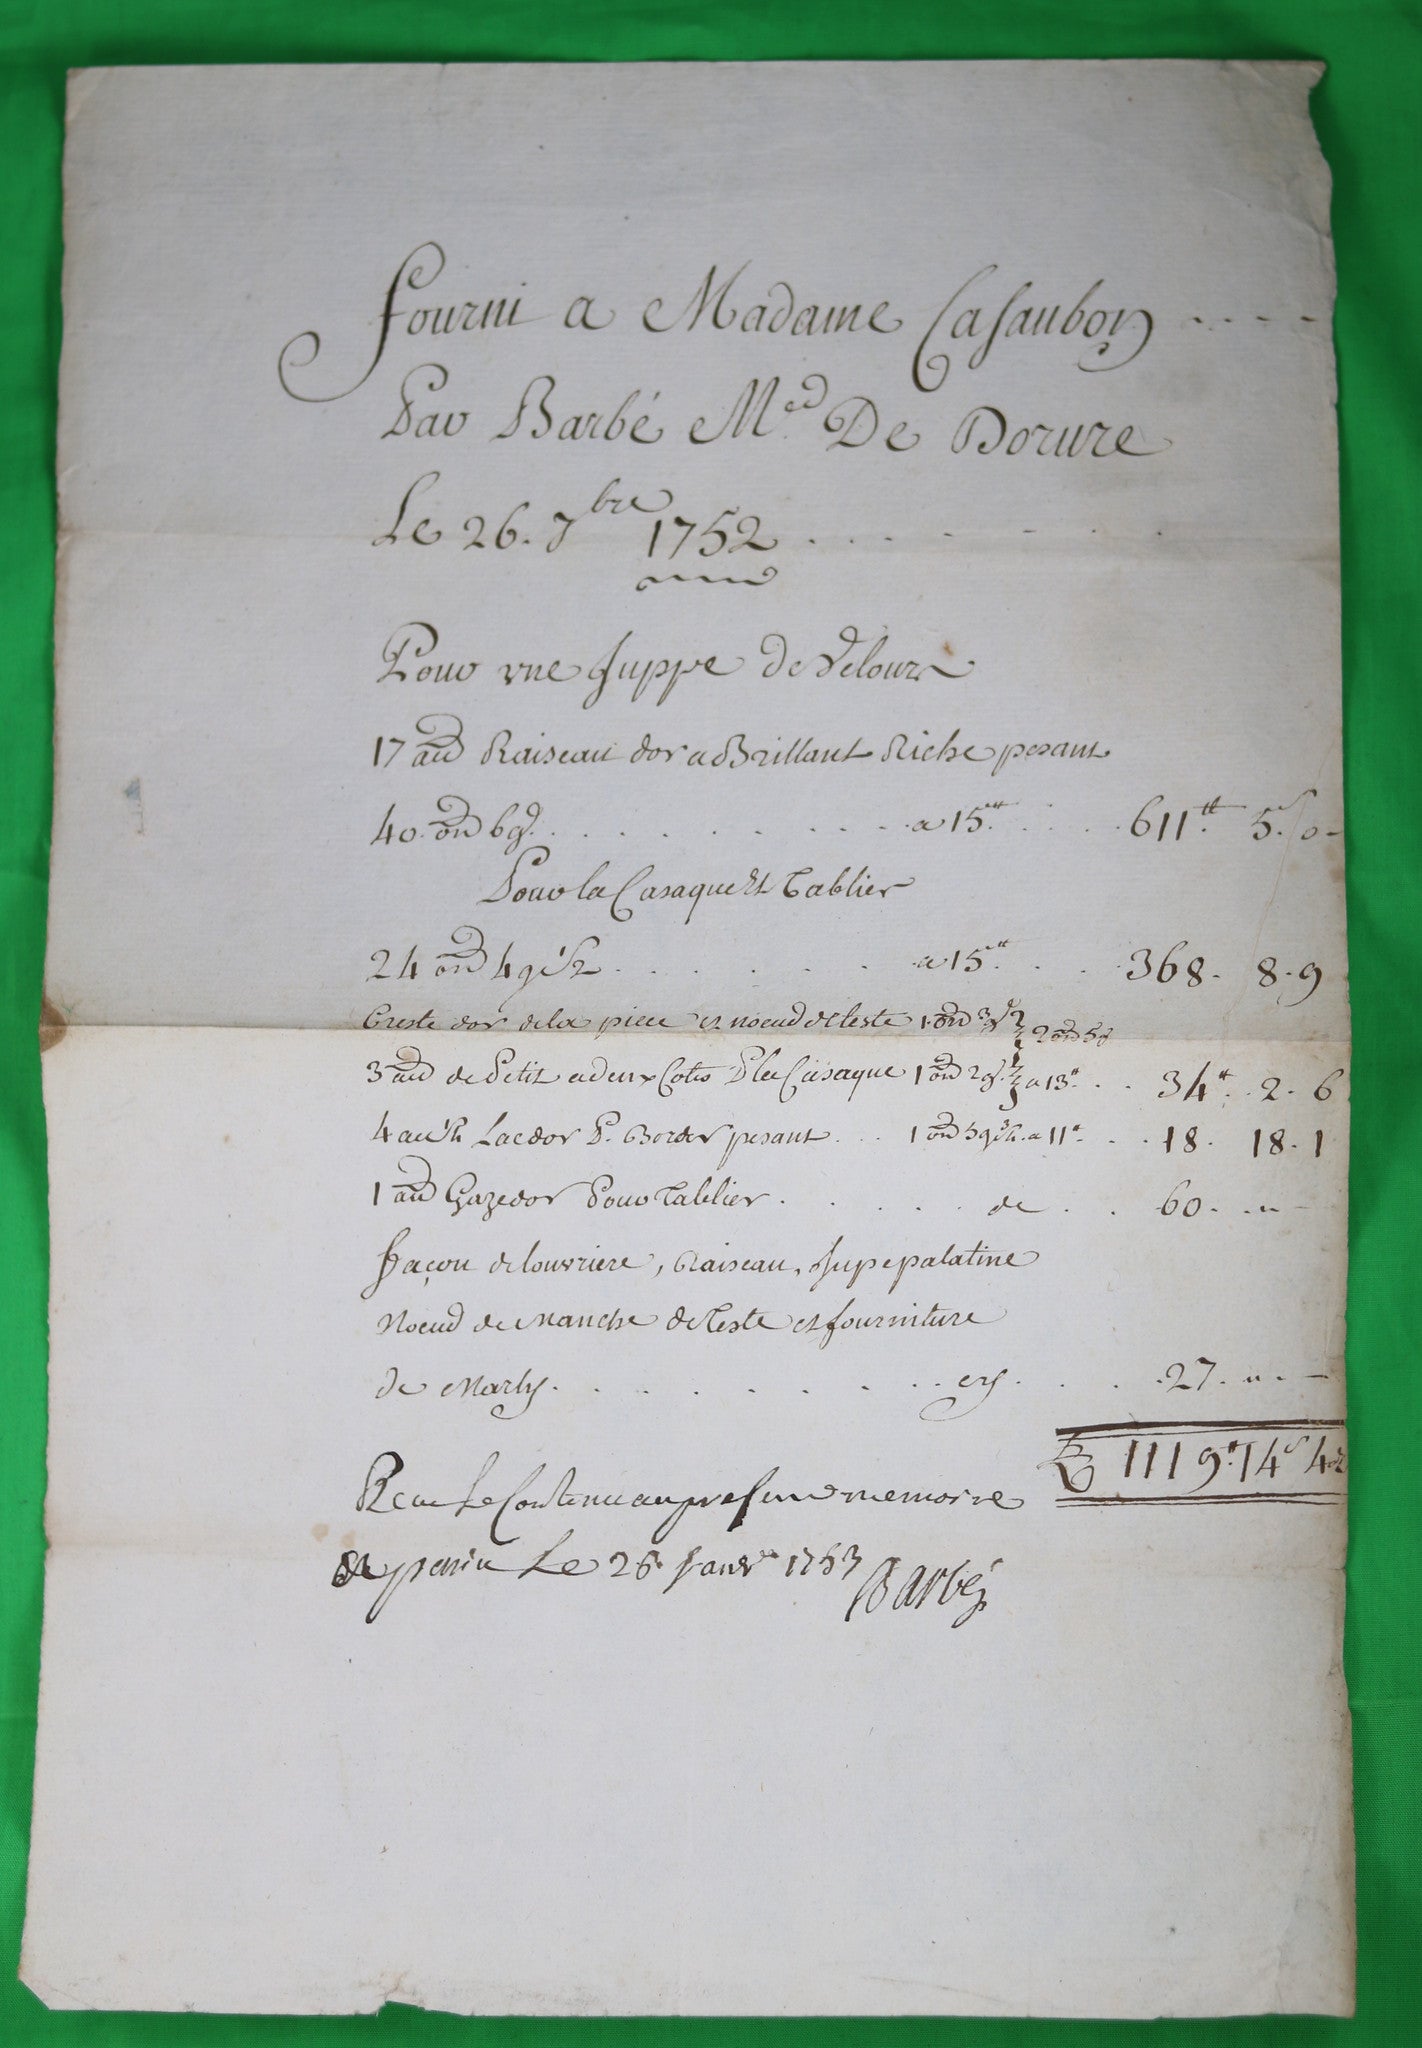 fourni a Madame Casaubon ....
Par Barbé M.ed De Dorure
Le 26. 7bre 1752 ......
Pour vne Juppe de Velour
17 aud Raiseau dor a Brillant Riche pesant
40 ond 6g. ........ a 15.tt .... 611.tt 5.s 0-
Pour la Casaque Et Tablier
24 ond 4g 1/2 ....... a 15.tt .... 368. 8. 9
Creste dor dela piece et noeud de teste 1 ond 3g 2 ond 5g
3 aud de Petit a deux Cotés P la Casaque 1 ond 2g. a 13.tt ... 34.tt 2. 6
4 au 1/2 Lacdor P. Border pesant ... 1 ond 5g a 11.tt ... 18. 18. 1
1 aud Gaze dor Pour Tablier ...... de .. 60. .. -
façon de louvriere, Raiseau, Jupe palatine
Noeud de Manche de Teste et fourniture
de Marly. ......... 27. .. -
1119.tt 14.s 4d
Recu Le Contenu au present memoire
a paris Le 26 Janv. 1753 Barbé